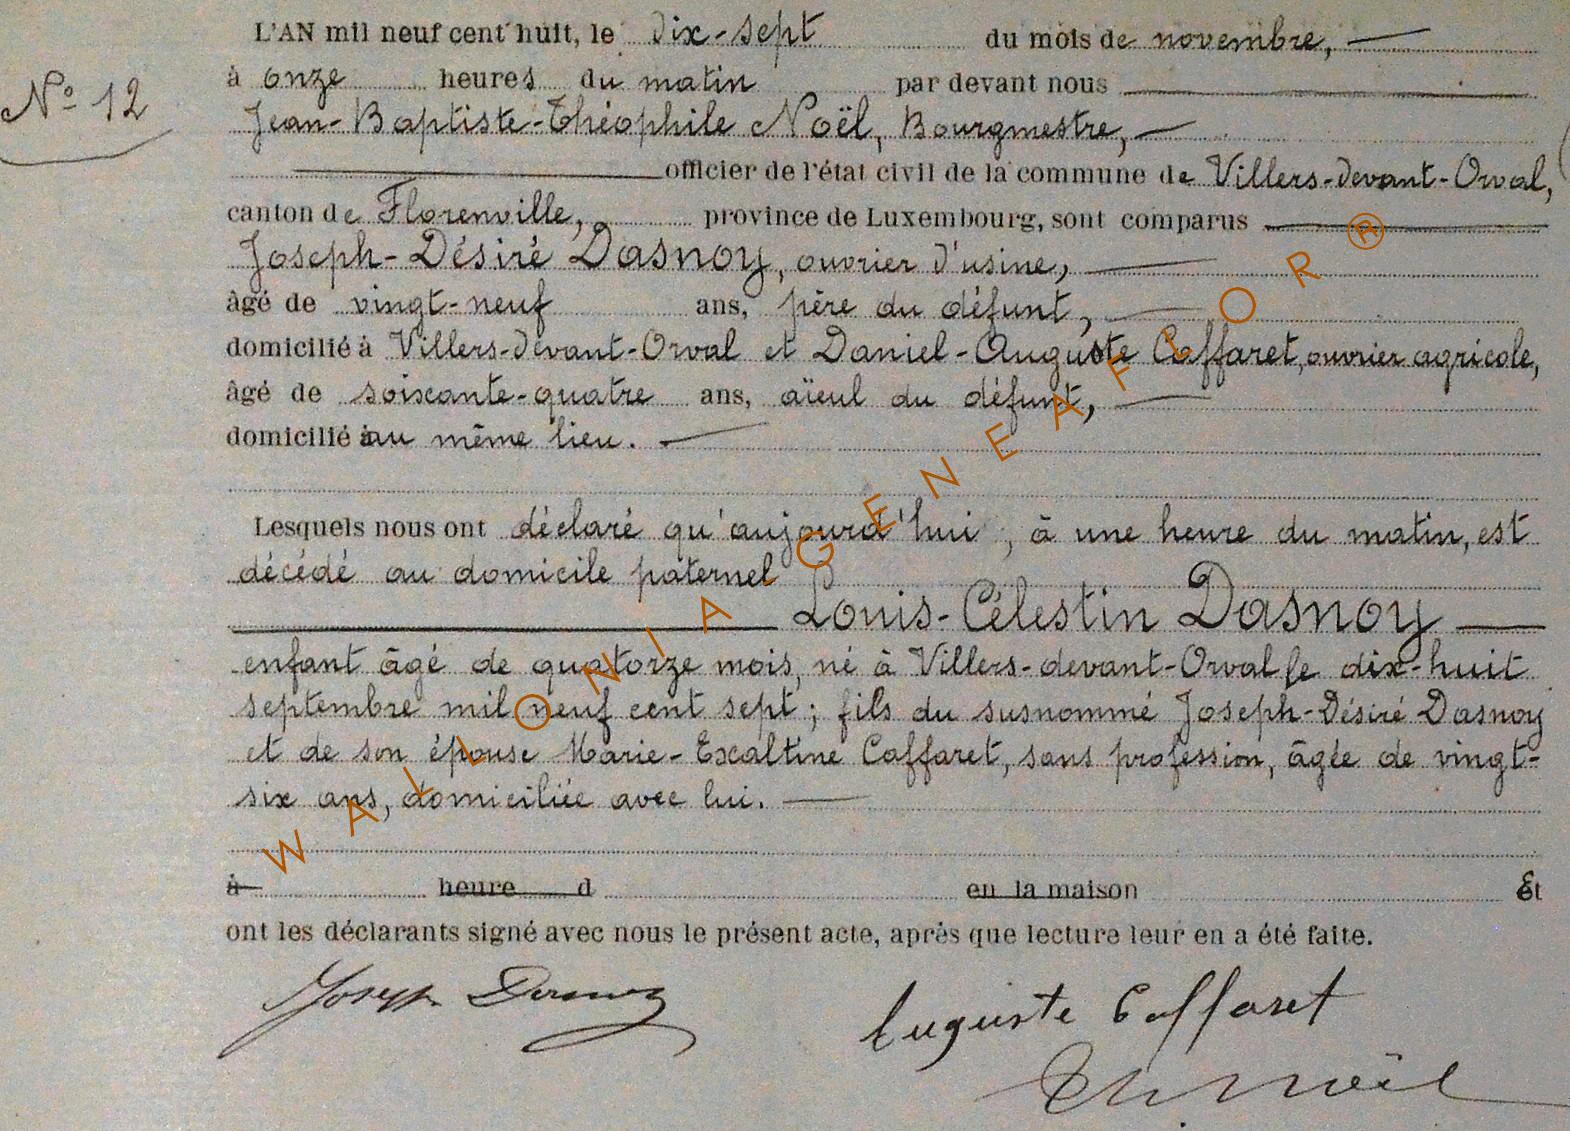 L'AN mil neuf cent huit, le dix-sept du mois de novembre,
N° 12
à onze heures du matin par devant nous
Jean-Baptiste-Théophile Noël, Bourgmestre,
officier de l'état civil de la commune de Villers-devant-Orval,
canton de Florenville, province de Luxembourg, sont comparus
Joseph-Désiré Dasnoy, ouvrier d'usine,
âgé de vingt-neuf ans, père du défunt,
domicilié à Villers-devant-Orval et Daniel-Auguste Caffaret, ouvrier agricole,
âgé de soixante-quatre ans, aïeul du défunt,
domicilié au même lieu.
Lesquels nous ont déclaré qu'aujourd'hui, à une heure du matin, est
décédé au domicile paternel
Louis-Célestin Dasnoy
enfant âgé de quatorze mois, né à Villers-devant-Orval le dix-huit
septembre mil neuf cent sept ; fils du susnommé Joseph-Désiré Dasnoy
et de son épouse Marie-Exaltine Caffaret, sans profession, âgée de vingt-
six ans, domiciliée avec lui.
à heure d en la maison Et
ont les déclarants signé avec nous le présent acte, après que lecture leur en a été faite.
Joseph Dasnoy
Auguste Caffaret
Th. Noël
WALLONIA GENEAFLOR ®